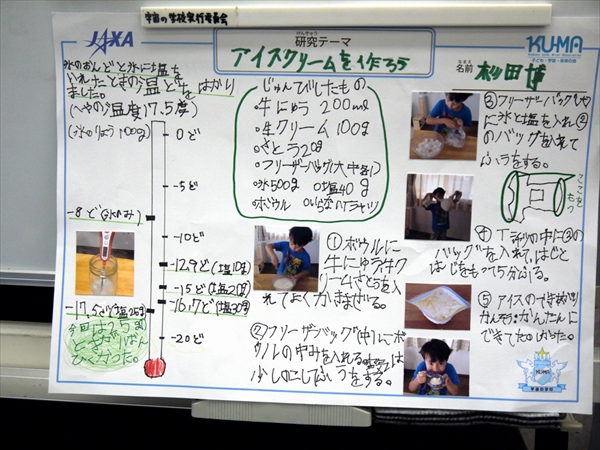 宇宙の学校実行委員会
JAXA
けんきゅう
研究テーマ
アイスクリームを作ろう
KU-MA
子ども・宇宙・未来の会
なまえ
名前
氷のおんどと氷に塩を
いれたときの温どをはかり
ました。
(へやの温度17.5度)
(氷のりょう100g)
0ど
-5ど
-8ど(氷のみ)
-10ど
-12.9ど(塩10g)
-15ど(塩20g)
-16.7ど(塩30g)
-17.5ど(塩25g)
-20ど
今回は25gが
いちばん
ひくかった。
じゅんびしたもの
・牛にゅう 200ml
・生クリーム 100g
・さとう20g
・フリーザーバッグ(大中各1)
・氷500g ○塩40g
・ボウル ○いらないTシャツ
①ボウルに
牛にゅう、生ク
リーム、さとうを入
れてよくかきまぜる。
②フリーザーバッグ(中)にボ
ウルの中みを入れる。
少しのこしてふうをする。
③フリーザーバッグ大
に氷と塩を入れ②
のバッグを入れて
ふうをする。
ここを
もつ
④Tシャツの中に③の
バッグを入れて、はじと
はじをもって5分ふる。
⑤アイスのできあがり
かんそう:かんたんに
できてた。
KU-MA
宇宙の学校